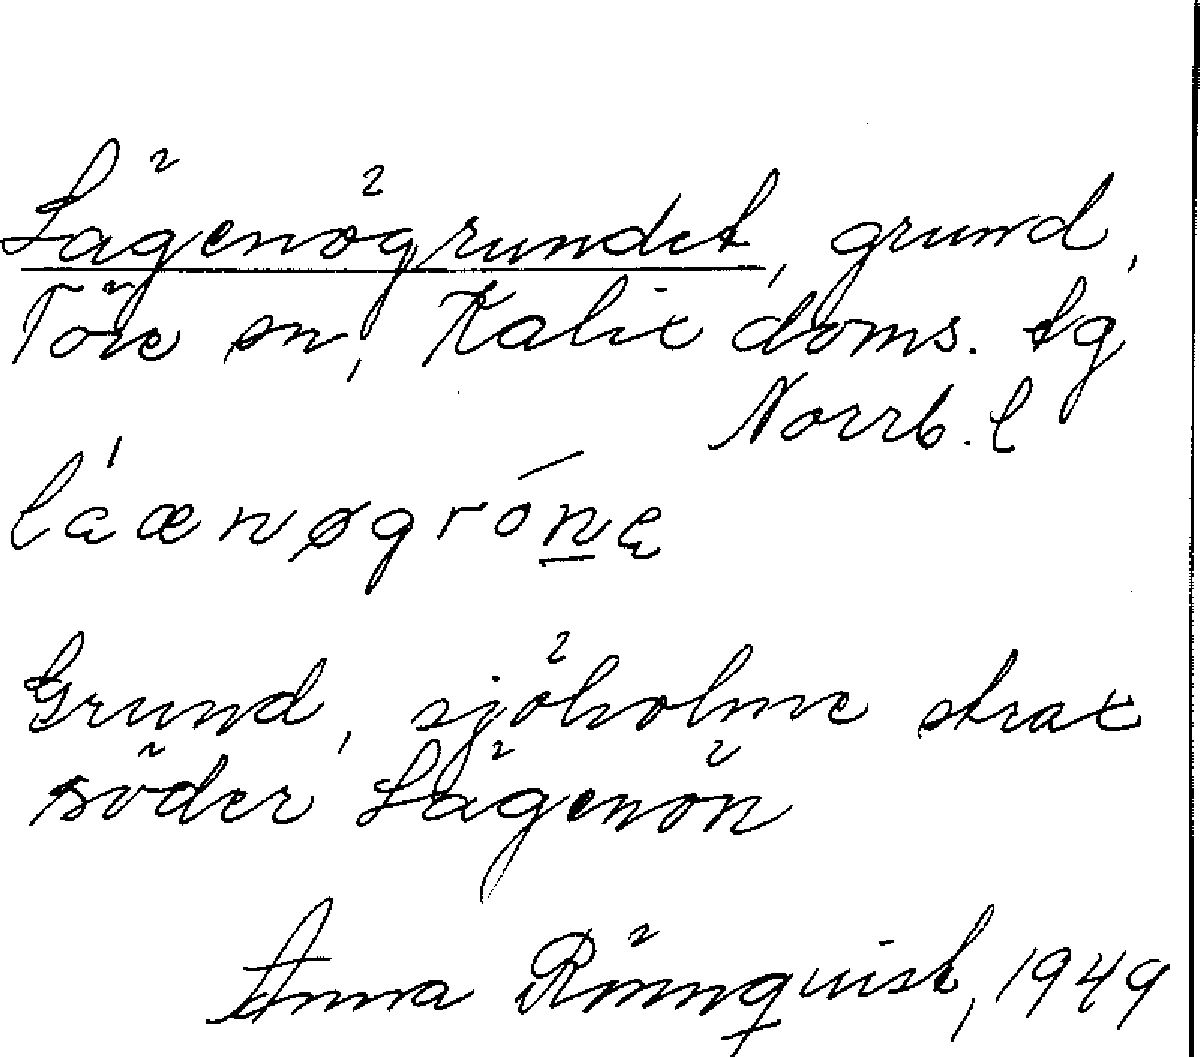 Lägenögrundet, grund,
Töre sn, Kalix doms. tg
Norrb. l
Grund, sjöholme strax
söder Lägenön
Anna Rönnquist, 1949